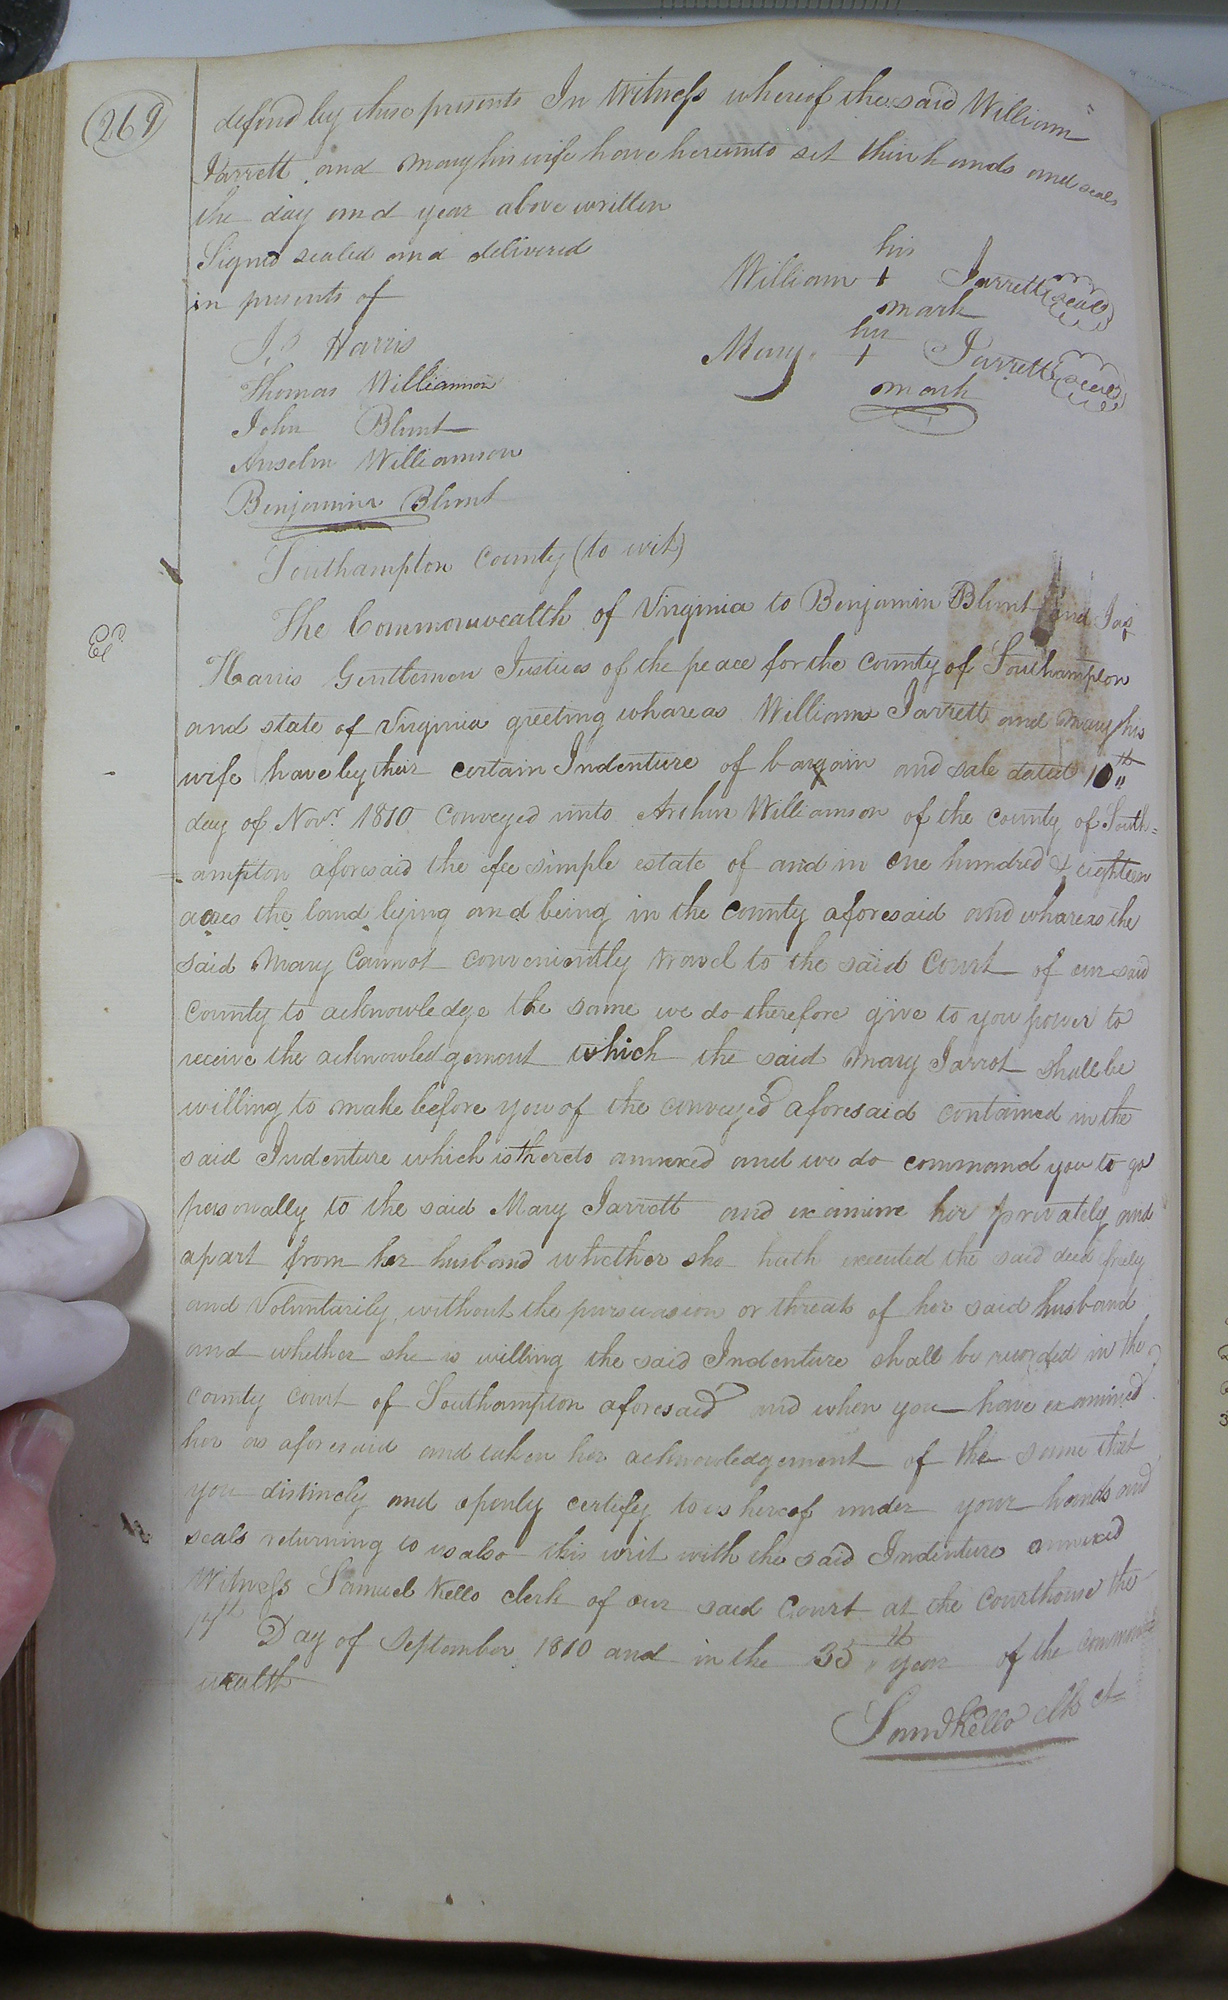 269
defend by these presents In Witness whereof the said William
Jarrett and Mary his wife have hereunto set their hands and seals
the day and year above written
Signd sealed and delivered
in presents of
his
William + Jarrett (seal)
mark
her
Mary + Jarrett (seal)
mark
J. Harris
Thomas Williamson
John Blunt
Anselm Williamson
Benjamin Blunt
Southampton County (to wit)
The Commonwealth of Virginia to Benjamin Blunt and Jas
Harris Gentlemen Justices of the peace for the county of Southampton
and state of Virginia greeting whareas William Jarrett and Mary his
wife have by their certain Indenture of bargain and sale dated 10th
day of Novr. 1810 conveyed unto Archer Williamson of the county of South=
ampton aforesaid the fee simple estate of and in one hundred & eighteen
acres the land lying and being in the county aforesaid and whareas the
said Mary Cannot conveniently travel to the said Court of our said
County to acknowledge the same we do therefore give to you power to
receive the acknowledgement which the said Mary Jarrot shall be
willing to make before you of the conveyed aforesaid contained in the
said Indenture which is thereto annexed and we do command you to go
personally to the said Mary Jarrott and examine her privately and
apart from her husband whether she hath executed the said deed freely
and Voluntarily, without the pursuasion or threats of her said husband
and whether she is willing the said Indenture shall be recorded in the
county court of Southampton aforesaid and when you have examined
her as aforesaid and taken her acknowledgement of the same that
you distincly and openly certify to us hereof under your hands and
seals returning to us also this writ with the said Indenture annexed
Witness Samuel Kello clerk of our said Court at the Courthouse the
Day of September 1810 and in the 35th year of the common
wealth
Saml Kello clk ct